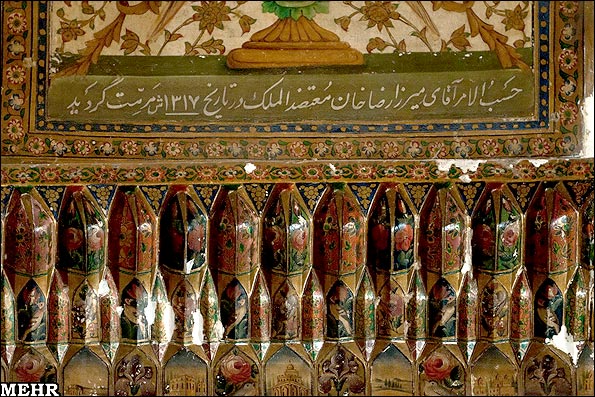 حسب الامر آقای میرزا رضا خان معتضد الملک در تاریخ ۱۳۱۷ مرمت گردید
MEHR